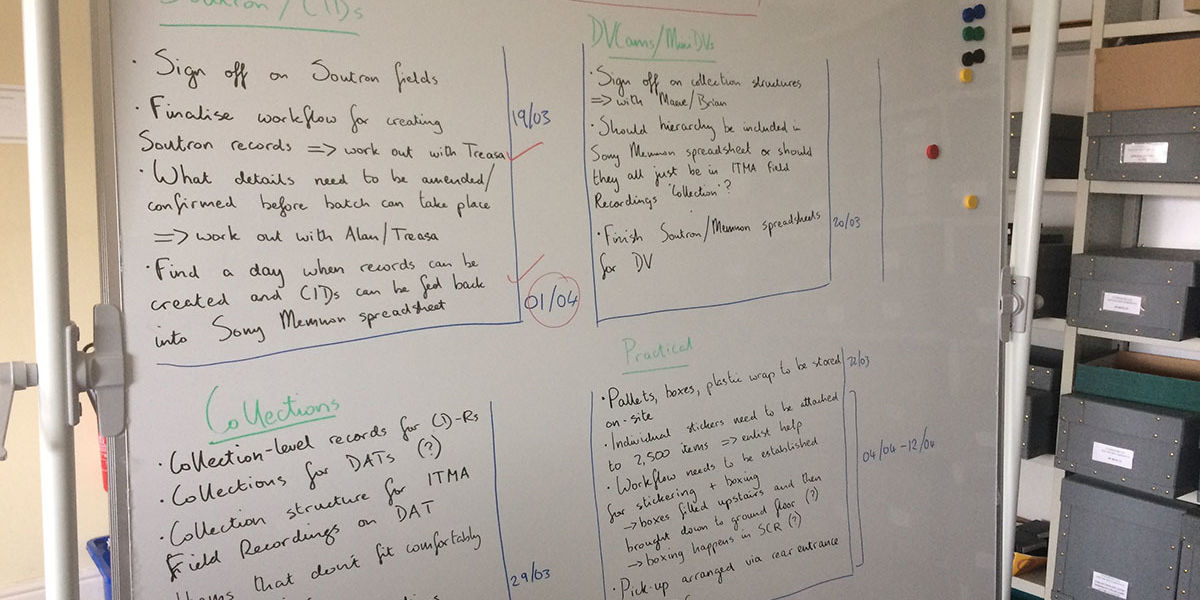 Soutron/CIDs
· Sign off on Soutron fields
· Finalise workflow for creating
Soutron records => work out with Treasa
19/03
· What details need to be amended/
confirmed before batch can take place
=> work out with Alan/Treasa
· Find a day when records can be
created and CIDs can be fed back
into Sony Memnon spreadsheet
01/04
DVCams/MiniDVs
· Sign off on collection structures
=> with Maeve/Brian
· Should hierarchy be included in
Sony Memnon spreadsheet or should
they all just be in ITMA Field
Recordings 'Collection'?
· Finish Soutron/Memnon spreadsheets
for DV
20/03
Collections
· Collection-level records for CD-Rs
· Collections for DATs (?)
· Collection structure for ITMA
Field Recordings on DAT
· Items that don't fit comfortably
29/03
Practical
· Pallets, boxes, plastic wrap to be stored
on-site
22/03
· Individual stickers need to be attached
to 2,500 items => enlist help
· Workflow needs to be established
for stickering + boxing
→ boxes filled upstairs and then
brought down to ground floor (?)
→ boxing happens in SCR (?)
· Pick-up arranged via rear entrance
04/04-12/04